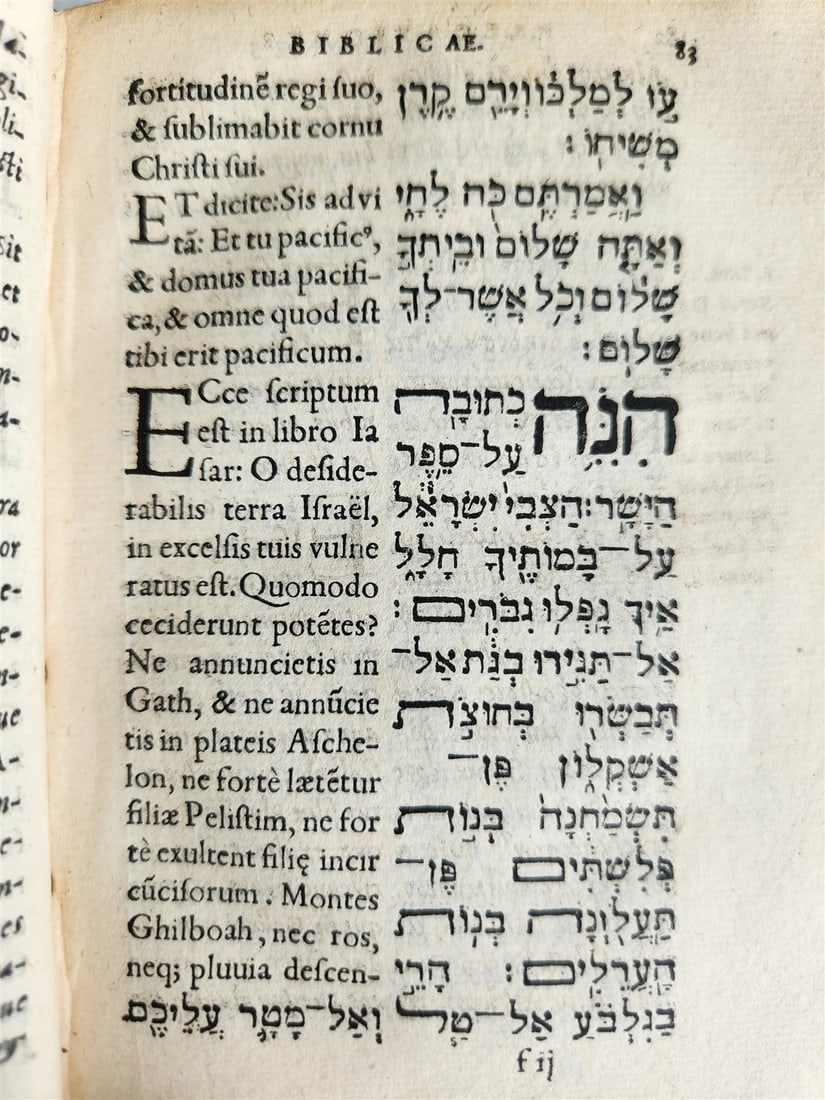 BIBLICAE. 83
fortitudinẽ regi ſuo,
& ſublimabit cornu
Chriſti ſui.
ET dicite: Sis ad vi
tã: Et tu pacificꝰ,
& domus tua pacifi-
ca, & omne quod eſt
tibi erit pacificum.
ECce ſcriptum
eſt in libro Ia
ſar: O deſide-
rabilis terra Iſraël,
in excelſis tuis vulne
ratus eſt. Quomodo
ceciderunt potẽtes?
Ne annuncietis in
Gath, & ne annũcie
tis in plateis Aſche-
lon, ne fortè lætẽtur
filiæ Peliſtim, ne for
tè exultent filię incir
cũciſorum. Montes
Ghilboah, nec ros,
neq; pluuia deſcen-
עֹז לְמַלְכּוֹ וְיָרֵם קֶרֶן
מְשִׁיחוֹ׃
וַאֲמַרְתֶּם כֹּה לֶחָי
וְאַתָּה שָׁלוֹם וּבֵיתְךָ
שָׁלוֹם וְכֹל אֲשֶׁר־לְךָ
שָׁלוֹם׃
הִנֵּה כְתוּבָה
עַל־סֵפֶר
הַיָּשָׁר׃ הַצְּבִי יִשְׂרָאֵל
עַל־בָּמוֹתֶיךָ חָלָל
אֵיךְ נָפְלוּ גִבֹּרִים׃
אַל־תַּגִּידוּ בְגַת אַל־
תְּבַשְּׂרוּ בְּחוּצֹת
אַשְׁקְלוֹן פֶּן־
תִּשְׂמַחְנָה בְּנוֹת
פְּלִשְׁתִּים פֶּן־
תַּעֲלֹזְנָה בְּנוֹת
הָעֲרֵלִים׃ הָרֵי
בַגִּלְבֹּעַ אַל־טַל
וְאַל־מָטָר עֲלֵיכֶם
f ij